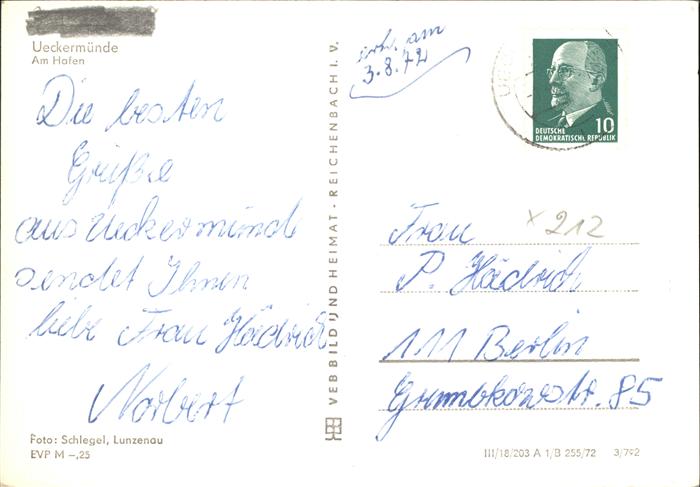 Ueckermünde
Am Hafen
Die besten
Grüße
aus Ueckermünde
sendet Ihnen
liebe Frau Hädrich
Norbert
Foto: Schlegel, Lunzenau
EVP M –,25
VEB BILD UND HEIMAT · REICHENBACH I. V.
erh. am
3.8.72
10
DEUTSCHE
DEMOKRATISCHE REPUBLIK
x 212
Frau
P. Hädrich
111 Berlin
Grumbkowstr. 85
III/18/203 A 1/B 255/72 3/792